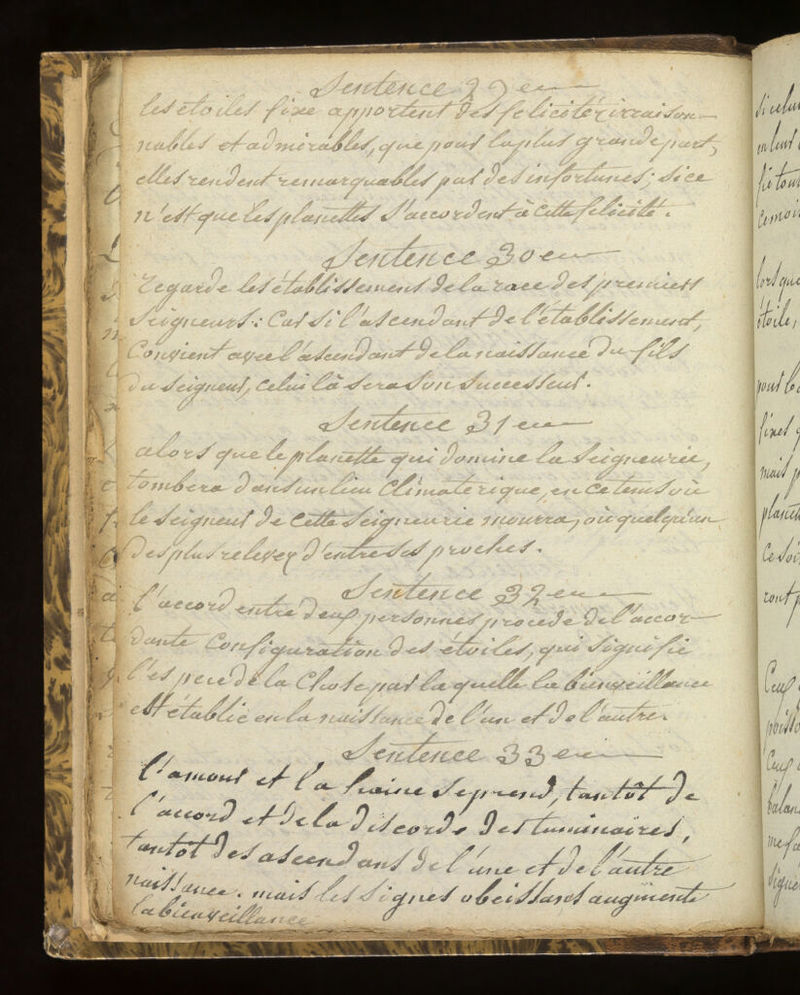 Sentence 29 eme
les etoiles fixe apportent des felicitéz irraison-
nables et admirables, que pour la plus grande part,
elles rendent remarquables par des infortunes; si ce
n'est que les planettes s'accordent à cette felicité.
Sentence 30 eme
regarde les établissement de la race des premiers
seigneurs: Car si l'ascendant de l'établissement,
Convient avec l'ascendant de la naissance du fils
du seigneur, celui là sera son successeur.
Sentence 31 eme
alors que le planette qui domine la seigneurie,
tombera dans un lieu Climaterique, en ce tems où
le seigneur de cette seigneurie mourra, où quelqu'un
des plus relevez d'entre ses proches.
Sentence 32 eme
l'accord entre deux personnes procede de l'accor-
dante Configuration des étoiles, qui signifie
l'espece de la Chose par laquelle la bienveillance
est établie en la naissance de l'un et de l'autre.
Sentence 33 eme
l'amour et la haine se prend, tantôt de
l'accord et de la discorde des luminaires,
tantôt des ascendans de l'une et de l'autre
naissance. mais les signes obeissans augmente
la bienveillance